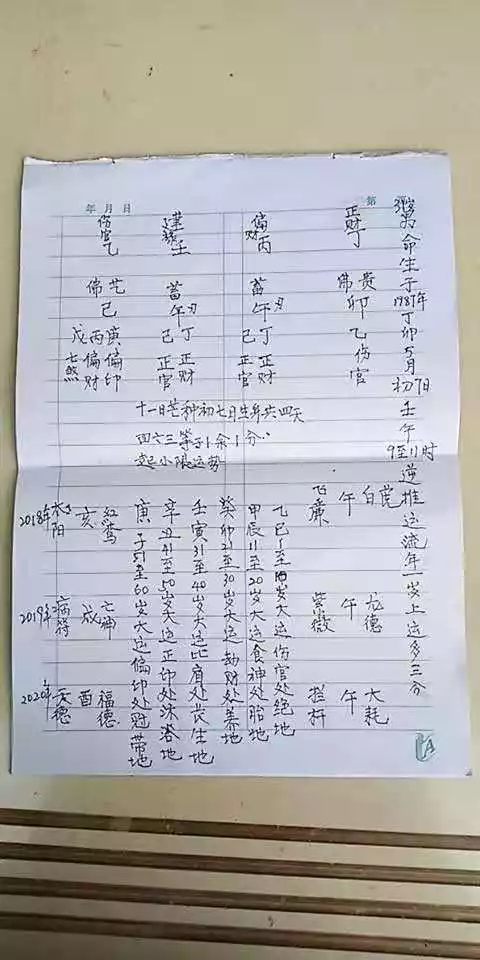 命生于1987年丁卯5月初7日壬午9至11时逆推运流年一岁上运多三分
正财丁
贵佛
卯
乙伤官
偏财丙
蓄
午刃
丁己
正财
正官
壬
蓄
午刃
丁己
正财
正官
伤官乙
艺佛
巳
庚丙戊
偏印
偏财
七煞
年月日
第
十一日芒种初七日生年共四天
四六三等于1余1分.
起小限运势
白虎
午
飞廉
龙德
午
紫微
大耗
午
拦杆
乙巳1至10岁大运伤官处绝地
甲辰11至20岁大运食神处胎地
癸卯21至30岁大运劫财处养地
壬寅31至40岁大运比肩处长生地
辛丑41至50岁大运正印处沐浴地
庚子51至60岁大运偏印处冠带地
2018年太阳
亥
红鸾
2019年病符
戌
亡神
2020年天德
酉
福德